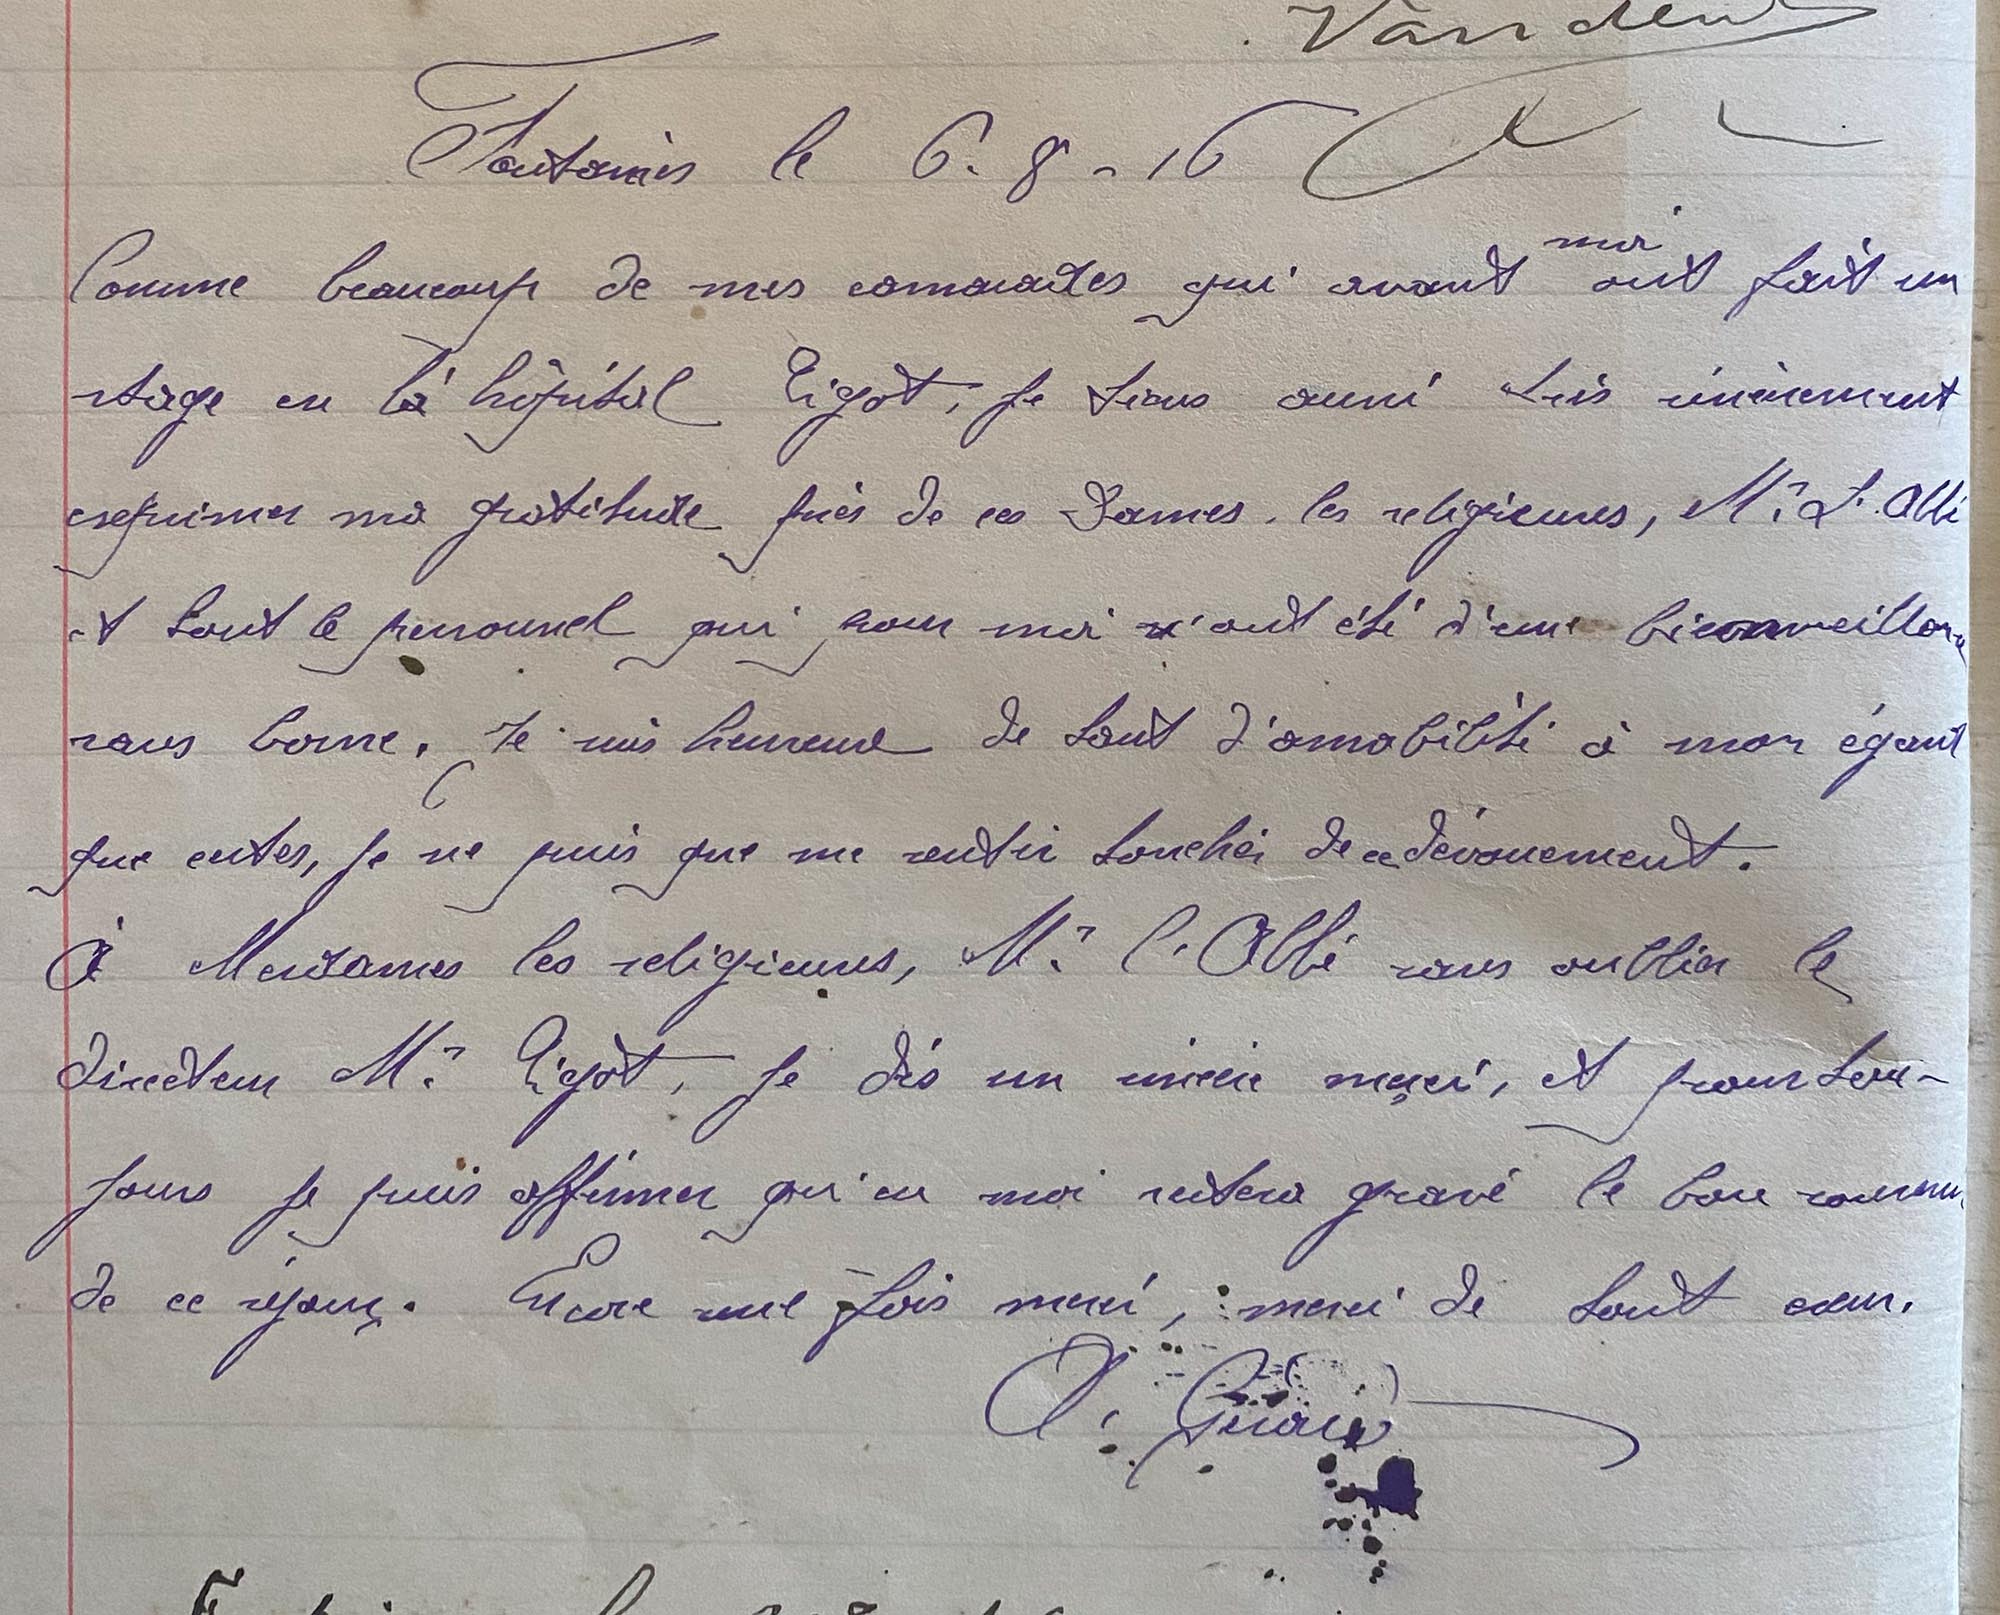 Fontaines le 6. 8 - 16
Comme beaucoup de mes camarades qui avant moi ont fait un
stage en l'a hôpital Pigot, je tiens aussi très sincèrement
exprimer ma gratitude près de ces Dames. les religieuses, Mr. L'Abbé
et tout le personnel qui pour moi n'ont été d'une bienveillance
sans borne. Je suis heureux de tout d'amabilité à mon égard
que certes, je ne puis que me sentir touchér de ce dévouement.
À Mesdames les religieuses, Mr. l'Abbé sans oublier le
directeur Mr. Pigot, je dis un sincère merci, et pour tou-
jours je puis affirmer qu'en moi restera gravé le bon souvenir
de ce séjour. Encore une fois merci, merci de tout cœur.
A. Girard